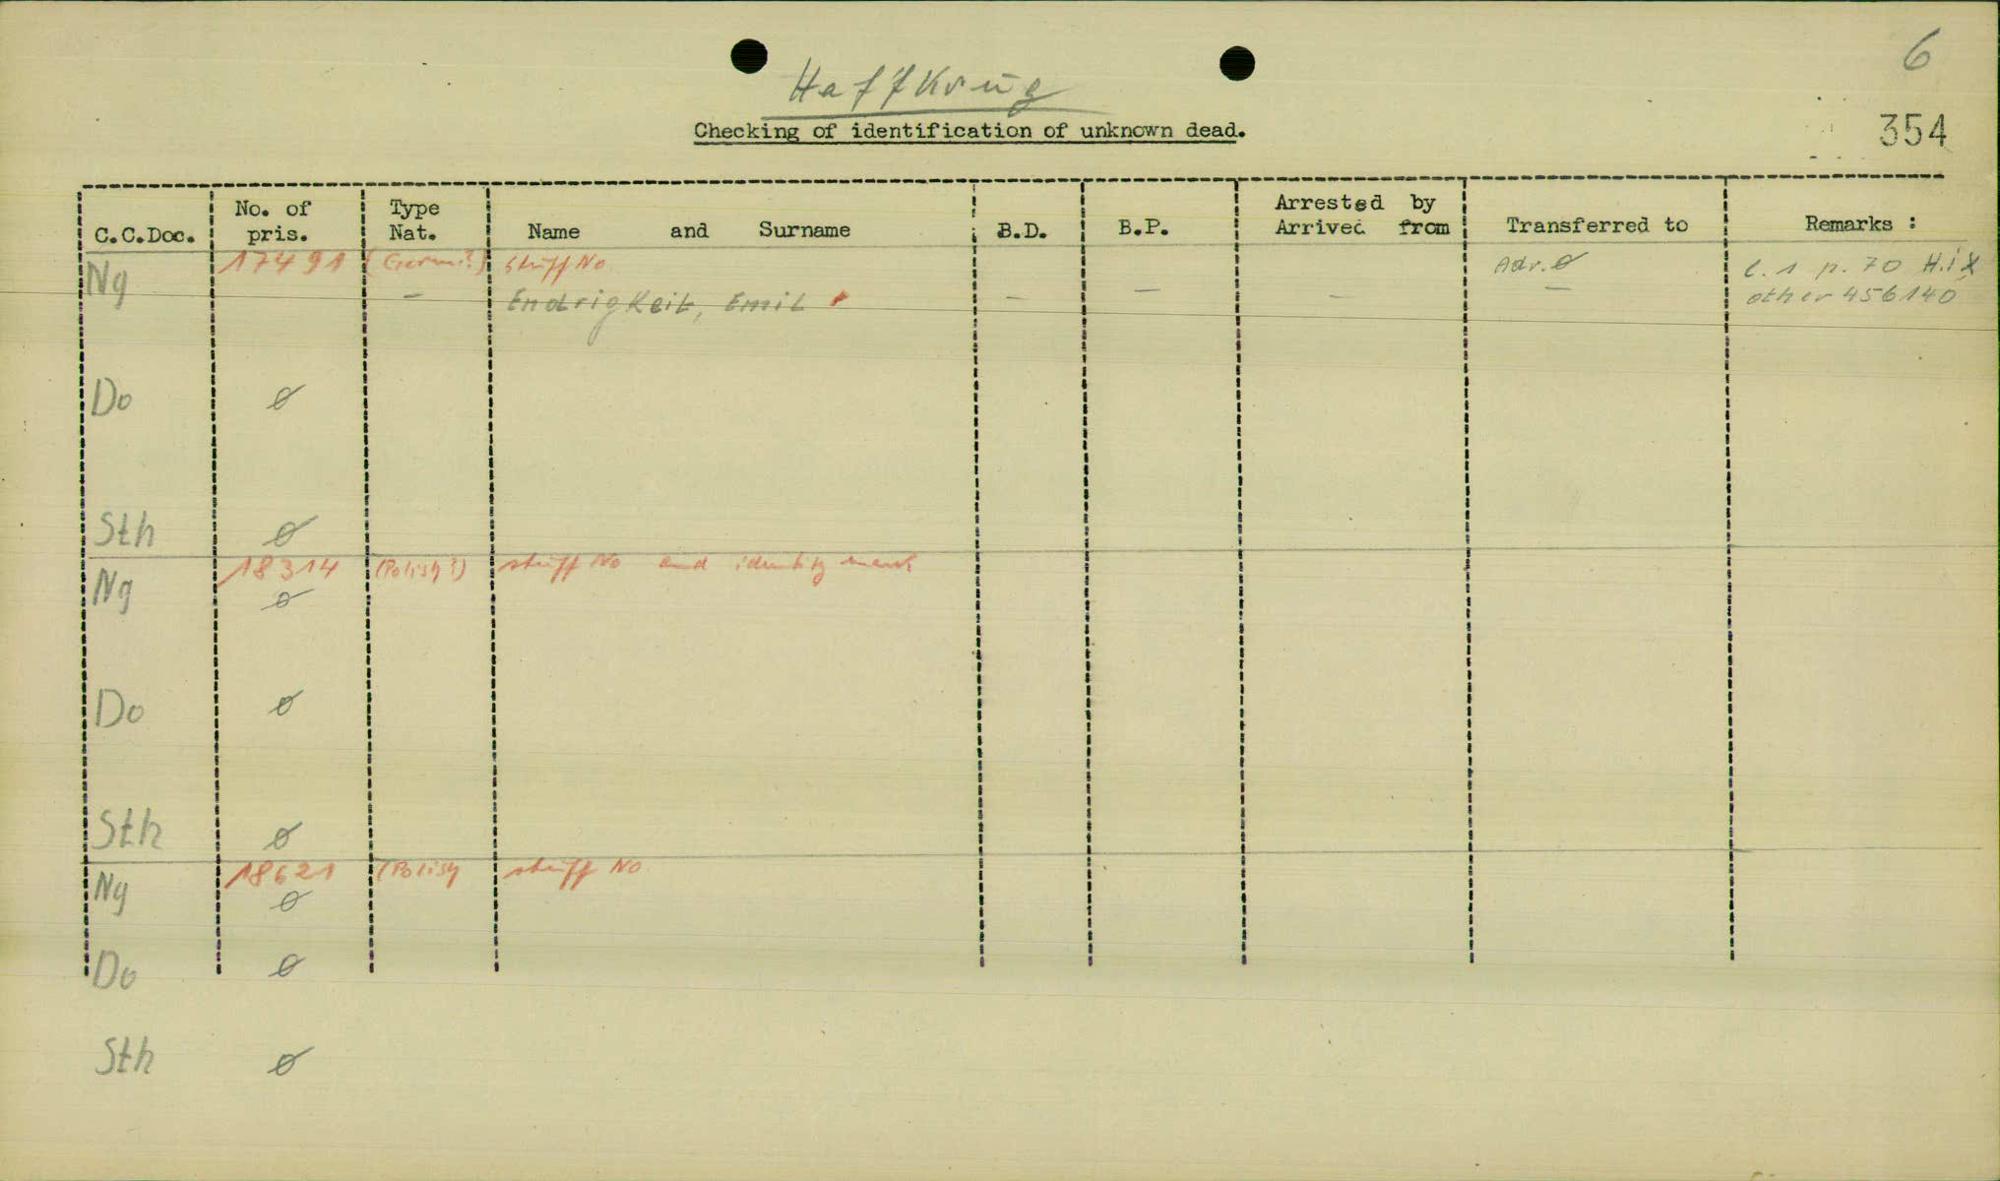 6
Haffkrug
Checking of identification of unknown dead.
354
C.C.Doc. No. of pris. Type Nat. Name and Surname B.D. B.P. Arrested by Arrived from Transferred to Remarks :
17491 (Germ.?) No
Ng — Endrigkeit, Emil — — — Adr. ø — l. 1 p. 70 H.
other 456140
Do ø
Sth ø
18314 (Polish?) No and identity mark
Ng ø
Do ø
Sth ø
18621 (Polish No
Ng ø
Do ø
Sth ø